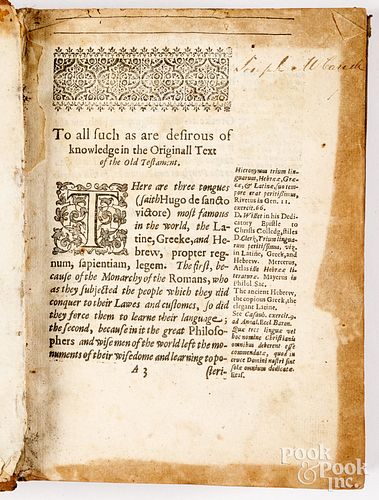 To all such as are desirous of
knowledge in the Originall Text
of the Old Testament.
THere are three tongues
(saith Hugo de sancto
victore) most famous
in the world, the La-
tine, Greeke, and He-
brew, propter reg-
num, sapientiam, legem. The first, be-
cause of the Monarchy of the Romans, who
as they subjected the people which they did
conquer to their Lawes and customes, so did
they force them to learne their language;
the second, because in it the great Philoso-
phers and wise men of the world left the mo-
numents of their wisedome and learning to po-
A 3
steri-
Hieronymus trium lin
guarum, Hebrææ, Græ-
cæ, & Latinæ, suo tem-
pore erat peritissimus,
Rivetus in Gen. 11.
exercit. 66.
D. Willet in his Dedi-
catory Epistle to
Christs Colledg, stiles
D. Clerk, Trium lingua-
rum peritissimus, viz.
in Latine, Greek, and
Hebrew. Mercerus,
Atlas ille Hebreæ li-
teraturæ. Mayerus in
Philol. Sac.
The ancient Hebrew,
the copious Greek, the
elegant Latine.
See Casaub. exercit.
ad Annal. Eccl. Baron.
Quæ tres linguæ vel
hoc nomine Christianis
omnibus deberent esse
commendatæ, quod in
cruce Domini nostri sint
solæ omnium dedicatæ
Pook
& Pook
Inc.